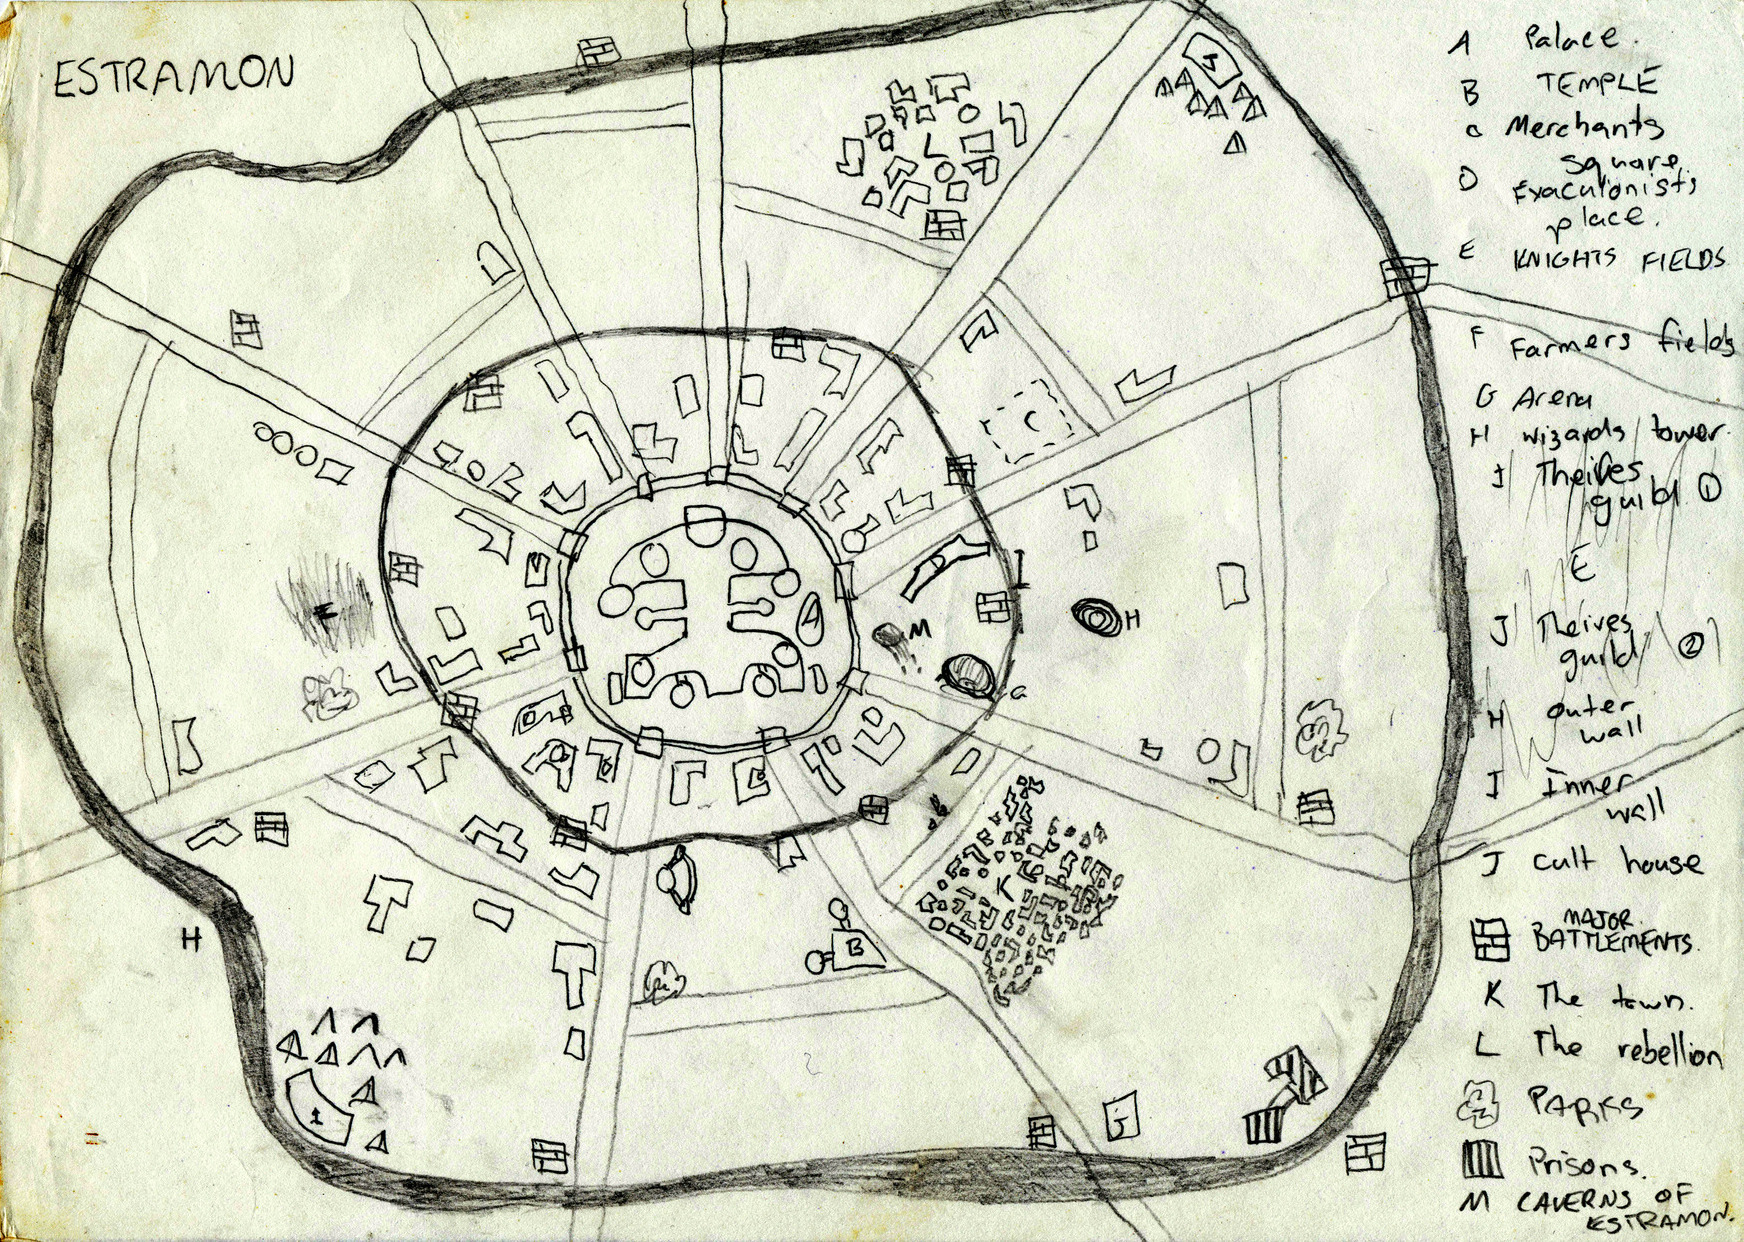 ESTRAMON
A Palace.
B TEMPLE
C Merchants
square.
D Exaculonists
place.
E KNIGHTS FIELDS
F Farmers fields
G Arena
H wizards tower.
I Theives
guild. 1
E
J Theives
guild 2
H outer
wall
I Inner
wall
J cult house
MAJOR
BATTLEMENTS.
K The town.
L The rebellion
PARKS
Prisons.
M CAVERNS OF
ESTRAMON.
J
L
C
D
I
A
M
H
F
G
K
H
B
1
J